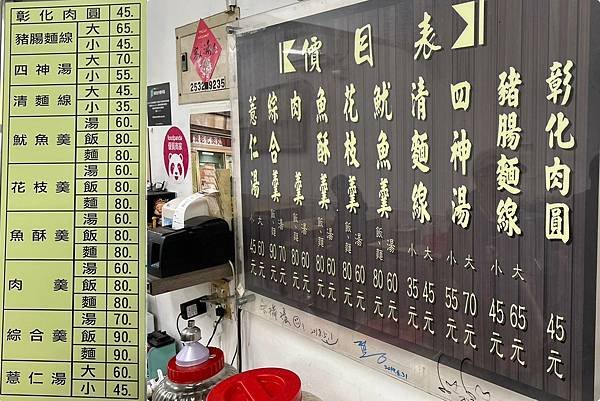 彰化肉圓 45.
豬腸麵線 大 65.
小 45.
四神湯 大 70.
小 55.
清麵線 大 45.
小 35.
魷魚羹 湯 60.
飯 80.
麵 80.
花枝羹 湯 60.
飯 80.
麵 80.
魚酥羹 湯 60.
飯 80.
麵 80.
肉羹 湯 60.
飯 80.
麵 80.
綜合羹 湯 70.
飯 90.
麵 90.
薏仁湯 大 60.
小 45.
價目表
彰化肉圓 45元
豬腸麵線 大 65元
小 45元
四神湯 大 70元
小 55元
清麵線 大 45元
小 35元
魷魚羹 湯 60元
飯、麵 80元
花枝羹 湯 60元
飯、麵 80元
魚酥羹 湯 60元
飯、麵 80元
肉羹 湯 60元
飯、麵 80元
綜合羹 湯 70元
飯、麵 90元
薏仁湯 大 60元
小 45元
foodpanda